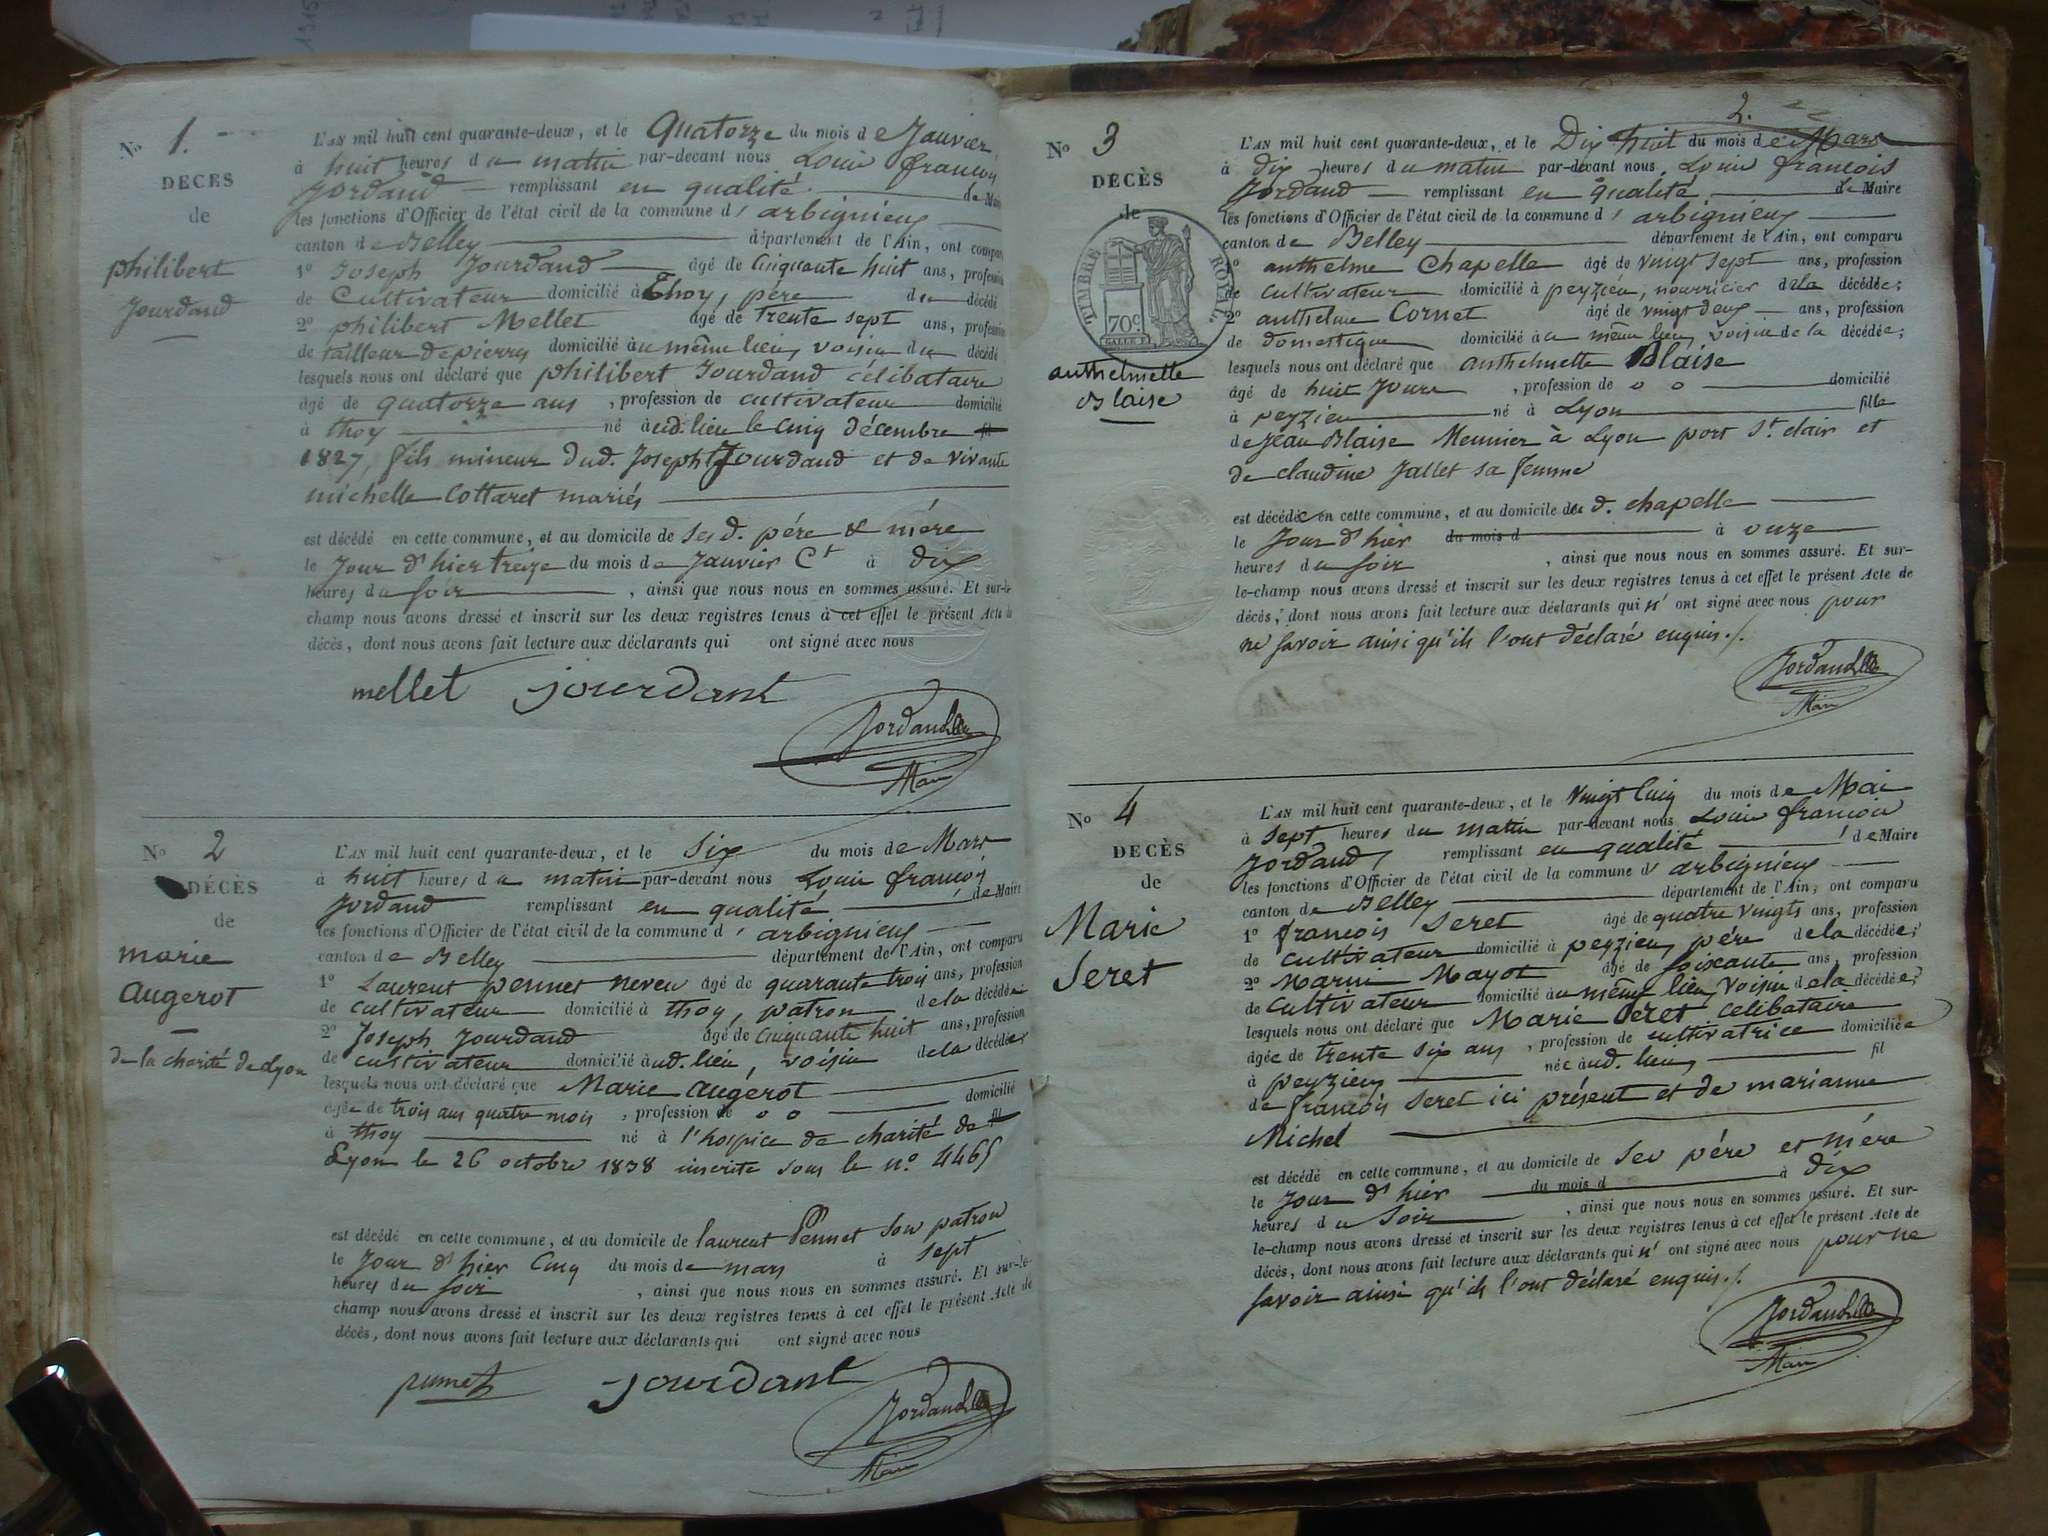 No 1.
DÉCÈS
de
philibert
Jourdand
L'AN mil huit cent quarante-deux, et le Quatorze du mois de Janvier
à huit heures du matin par-devant nous Louis françois
Jordand remplissant en qualité de Maire
les fonctions d'Officier de l'état civil de la commune d'arbignieu
canton de Belley département de l'Ain, ont comparu
1º Joseph Jourdand âgé de Cinquante huit ans, profession
de Cultivateur domicilié à Thoy, père du décédé
2º philibert Mellet âgé de trente sept ans, profession
de tailleur de pierres domicilié au même lieu, voisin du décédé
lesquels nous ont déclaré que philibert Jourdand célibataire
âgé de quatorze ans, profession de cultivateur domicilié
à thoy né aud. lieu le cinq décembre
1827, fils mineur dud. Joseph Jourdand et de vivante
michelle Cottaret mariés
est décédé en cette commune, et au domicile de ses d. père & mère
le Jour d'hier treize du mois de Janvier Ct à dix
heures du soir, ainsi que nous nous en sommes assuré. Et sur-le-
champ nous avons dressé et inscrit sur les deux registres tenus à cet effet le présent Acte de
décès, dont nous avons fait lecture aux déclarants qui ont signé avec nous
mellet jourdant
Jordand
Maire
No 2
DÉCÈS
de
marie
augerot
de la charité de Lyon
L'AN mil huit cent quarante-deux, et le Six du mois de Mars
à huit heures du matin par-devant nous Louis françois
Jordand remplissant en qualité de Maire
les fonctions d'Officier de l'état civil de la commune d'arbignieu
canton de Belley département de l'Ain, ont comparu
1º Laurent pennet neveu âgé de quarante trois ans, profession
de cultivateur domicilié à thoy, patron de la décédée
2º Joseph Jourdand âgé de Cinquante huit ans, profession
de cultivateur domicilié aud. lieu, voisin de la décédée
lesquels nous ont déclaré que Marie augerot
âgée de trois ans quatre mois, profession de o o domicilié
à thoy né à l'hospice de charité de
Lyon le 26 octobre 1838 inscrite sous le nº. 4465
est décédé en cette commune, et au domicile de laurent Pennet son patron
le Jour d'hier Cinq du mois de mars à sept
heures du soir, ainsi que nous nous en sommes assuré. Et sur-le-
champ nous avons dressé et inscrit sur les deux registres tenus à cet effet le présent Acte de
décès, dont nous avons fait lecture aux déclarants qui ont signé avec nous
jourdant
Jordand
Maire
2.
No 3
DÉCÈS
de
TIMBRE ROYAL
70c
anthelmette
Blaise
L'AN mil huit cent quarante-deux, et le Dix huit du mois de Mars
à dix heures du matin par-devant nous Louis françois
Jordand remplissant en qualité de Maire
les fonctions d'Officier de l'état civil de la commune d'arbignieu
canton de Belley département de l'Ain, ont comparu
1º anthelme Chapelle âgé de vingt sept ans, profession
de cultivateur domicilié à peyzieu, nourricier de la décédée;
2º anthelme Cornet âgé de vingt deux ans, profession
de domestique domicilié au même lieu, voisin de la décédée;
lesquels nous ont déclaré que anthelmette Blaise
âgé de huit Jours, profession de o o domicilié
à peyzieu né à Lyon fille
de Jean Blaise Meunier à Lyon port St. clair et
de claudine Jallet sa femme
est décédée en cette commune, et au domicile du d. chapelle
le Jour d'hier du mois d à onze
heures du soir, ainsi que nous nous en sommes assuré. Et sur-
le-champ nous avons dressé et inscrit sur les deux registres tenus à cet effet le présent Acte de
décès, dont nous avons fait lecture aux déclarants qui n'ont signé avec nous pour
ne savoir ainsi qu'ils l'ont déclaré enquis./.
Jordand
Maire
No 4
DÉCÈS
de
Marie
Seret
L'AN mil huit cent quarante-deux, et le Vingt Cinq du mois de Mai
à sept heures du matin par-devant nous Louis françois
Jordand, remplissant en qualité de Maire
les fonctions d'Officier de l'état civil de la commune d'arbignieu
canton de Belley département de l'Ain, ont comparu
1º françois Seret âgé de quatre vingts ans, profession
de cultivateur domicilié à peyzieu, père de la décédée;
2º Marin Mayot âgé de soixante ans, profession
de cultivateur domicilié au même lieu, voisin de la décédée;
lesquels nous ont déclaré que Marie Seret célibataire
âgée de trente six ans, profession de cultivatrice domiciliée
à peyzieu née aud. lieu, fil
de françois Seret ici présent et de marianne
Michel
est décédé en cette commune, et au domicile de ses père et mère
le Jour d'hier du mois d à dix
heures du soir, ainsi que nous nous en sommes assuré. Et sur-
le-champ nous avons dressé et inscrit sur les deux registres tenus à cet effet le présent Acte de
décès, dont nous avons fait lecture aux déclarants qui n'ont signé avec nous pour ne
savoir ainsi qu'ils l'ont déclaré enquis./.
Jordand
Maire